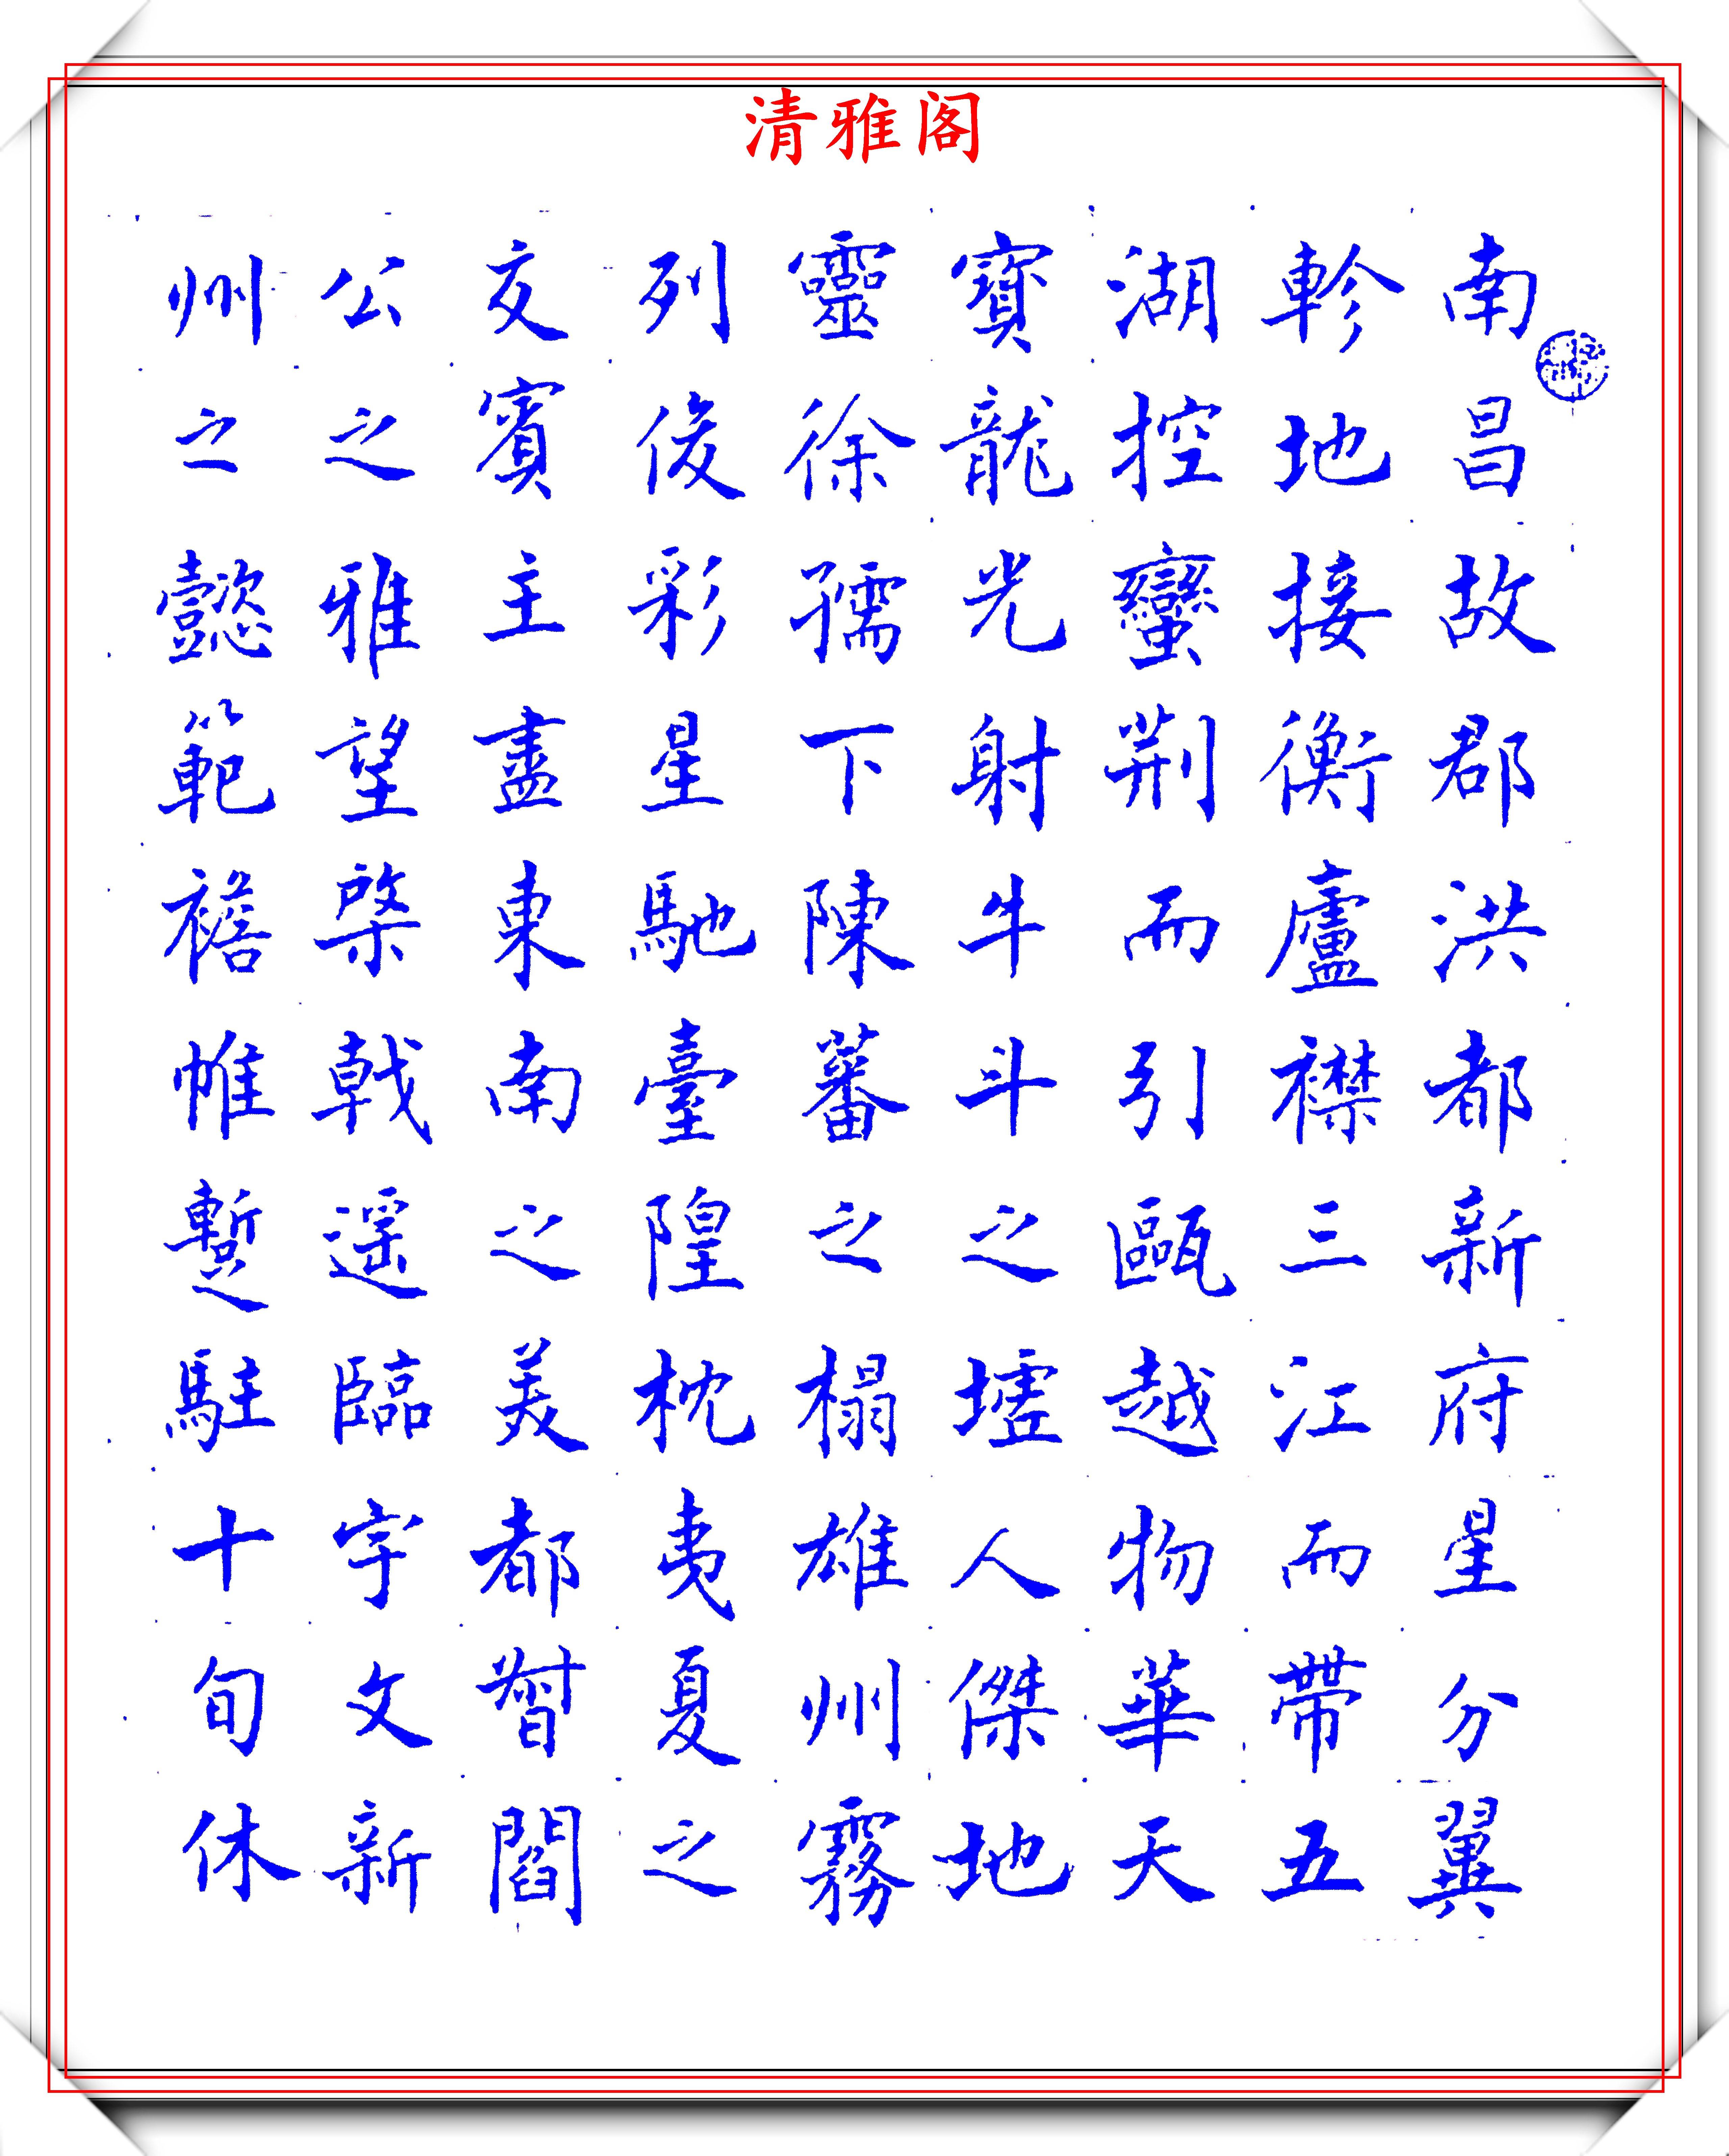 清雅阁
南昌故郡洪都新府星分翼
軫地接衡廬襟三江而帶五
湖控蠻荆而引甌越物華天
寶龍光射牛斗之墟人傑地
靈徐孺下陳蕃之榻雄州霧
列俊彩星馳臺隍枕夷夏之
交賓主盡東南之美都督閻
公之雅望棨戟遥臨宇文新
州之懿範襜帷蹔駐十旬休